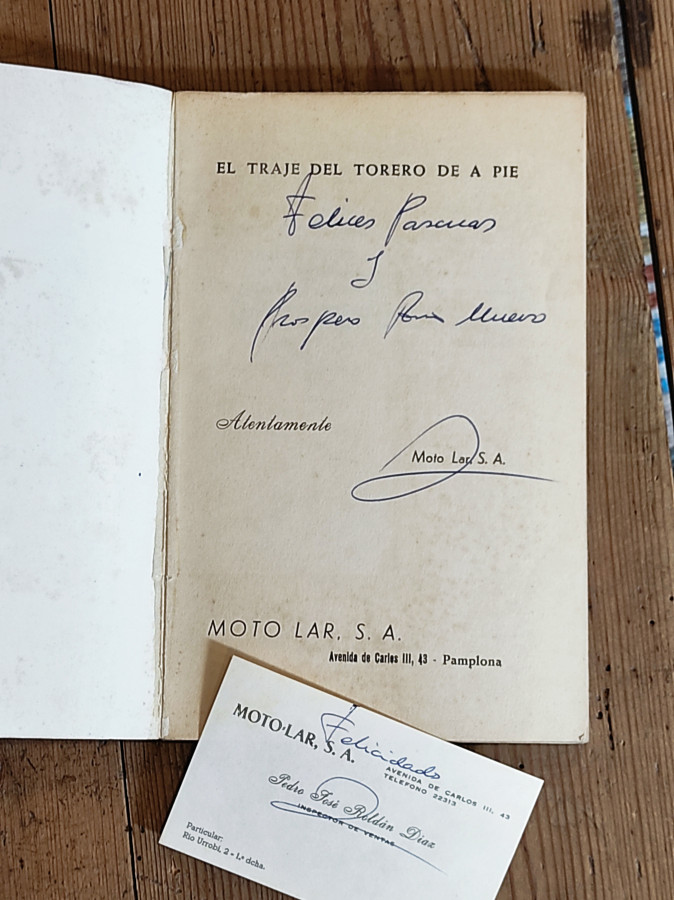 EL TRAJE DEL TORERO DE A PIE
Felices Pascuas
y
Prospero Año Nuevo
Atentamente
Moto Lar, S. A.
MOTO LAR, S. A.
Avenida de Carlos III, 43 - Pamplona
MOTO-LAR, S. A.
Felicidades
AVENIDA DE CARLOS III, 43
TELEFONO 22313
Pedro José Roldán Diaz
INSPECTOR DE VENTAS
Particular:
Rio Urrobi, 2 - 1.ª dcha.